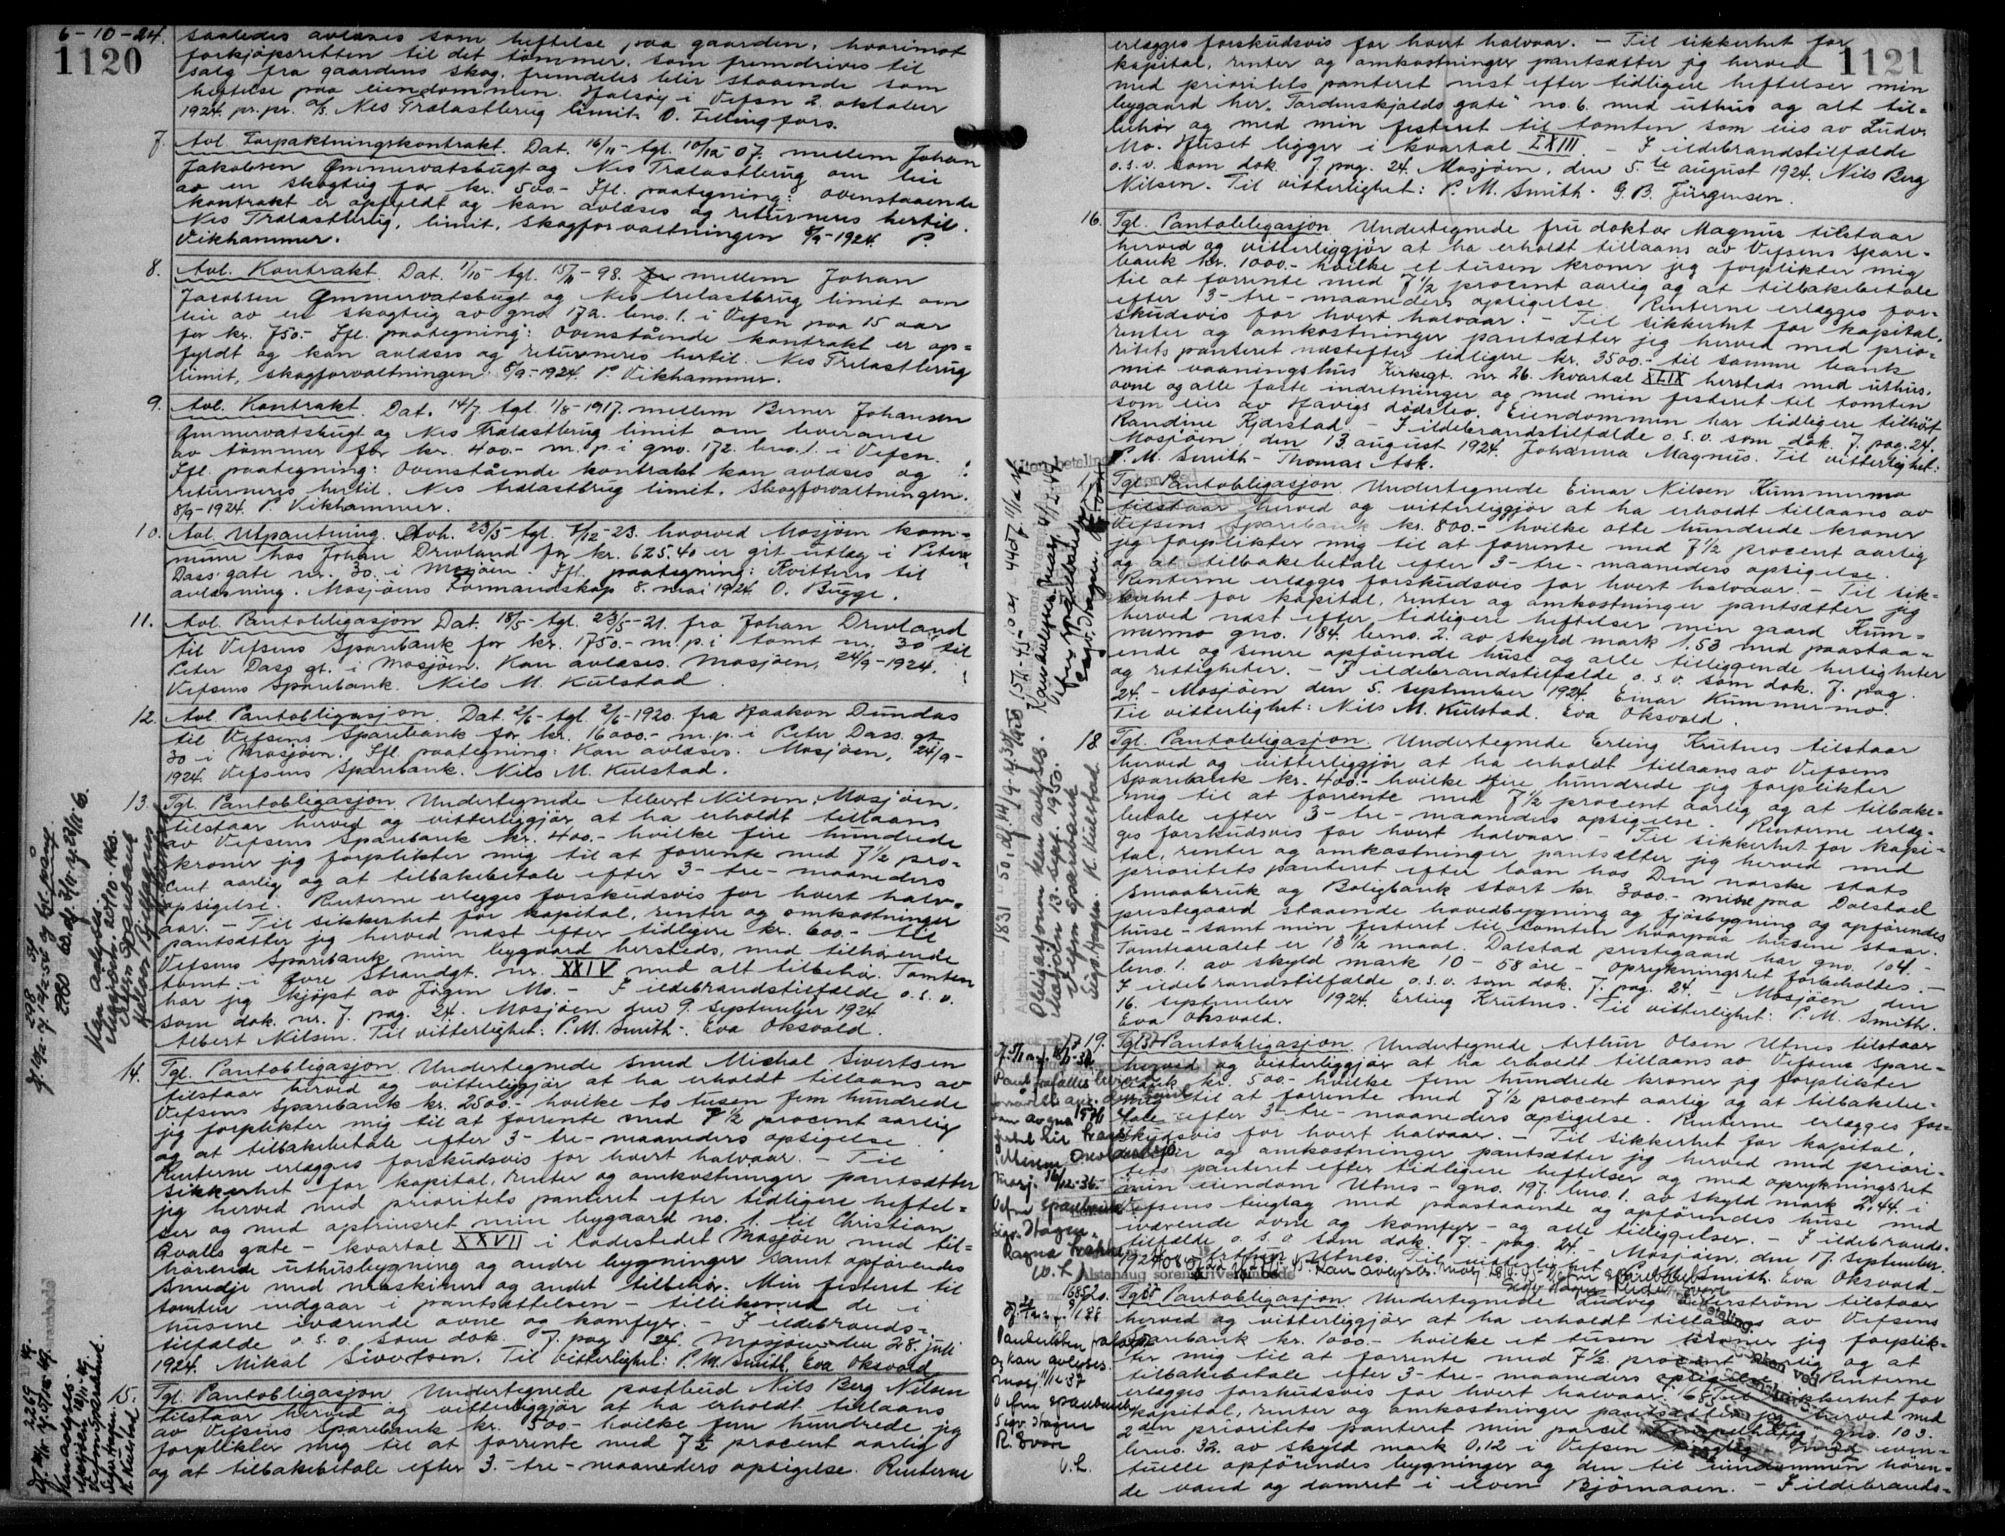 6-10-24.
1120
saaledes avlæses som heftelse paa gaarden, hvorimot
forkjøpsretten til det tømmer, som fremdrives til
salg fra gaardens skog, fremdeles blir staaende som
heftelse paa eiendommen. Halsøy i Vefsn 2. oktober
1924. pr. pr. A/S Nes Trælastbrug limit. O. Fellingfors.
7. Avl. Forpaktningskontrakt. Dat. 16/11 - tgl. 10/12-07. mellem Johan
Jakobsen Ømmervatsbugt og Nes Trælastbrug om leie
av en skogteig for kr. 500.- Ifl. paategning: ovenstaaende
kontrakt er opfyldt og kan avlæses og returneres hertil.
Nes Trælastbrug, limit, skogforvaltningen 8/9-1924. P.
Vikhammer.
8. Avl. Kontrakt. Dat. 1/10 - tgl. 15/11-98. mellem Johan
Jacobsen Ømmervatsbugt og Nes trelastbrug limit om
leie av en skogteig av gno. 172. bno. 1. i Vefsn paa 15 aar
for kr. 750.- Ifl. paategning: Ovenstående kontrakt er op=
fyldt og kan avlæses og returneres hertil. Nes Trelastbrug
limit, skogforvaltningen 8/9-1924. P. Vikhammer.
9. Avl. Kontrakt. Dat. 14/7 tgl. 1/8-1917. mellem Berner Johansen
Ømmervatsbugt og Nes Trælastbrug limit om leveranse
av tømmer for kr. 400.- m. p. i gno. 172. bno. 1. i Vefsn.
Ifl. paategning: Ovenstående kontrakt kan avlæses og
returneres hertil. Nes trælastbrug limit. Skogforvaltningen.
8/9-1924. P. Vikhammer.
10. Avl. Utpantning. Avh. 23/5- tgl. 7/12-23. hvorved Mosjøen kom=
mune hos Johan Drevland for kr. 625.40 er git utlæg i Peter
Dass gate nr. 30. i Mosjøen. Ifl. paategning: Kvitteres til
avlæsning. Mosjøens Formandskap 8. mai 1924. O. Bugge.
11. Avl. Pantobligasjon Dat. 18/5- tgl. 23/5-21. fra Johan Drevland
til Vefsens Sparebank for kr. 1750.- m. p. i tomt nr. 30 til
Peter Dass gt. i Mosjøen. Kan avlæses. Mosjøen, 24/9-1924.
Vefsens Sparebank. Nils M. Kulstad.
12. Avl. Pantobligasjon. Dat. 2/6- tgl. 2/6-1920. fra Haakon Dundas
til Vefsens Sparebank for kr. 16000.- m. p. i Peter Dass gt.
30 i Mosjøen. Ifl. paategning: Kan avlæses. Mosjøen, 24/9-
1924. Vefsens Sparebank. Nils M. Kulstad.
13. Tgl. Pantobligasjon Undertegnede Albert Nilsen, Mosjøen,
tilstaar herved og vitterliggjør at ha erholdt tillaans
av Vefsens Sparebank kr. 400.- hvilke fire hundrede
kroner jeg forplikter mig til at forrente med 7 1/2 pro-
cent aarlig og at tilbakebetale efter 3- tre- maaneders
opsigelse. Renterne erlegges forskudsvis for hvert halv-
aar. - Til sikkerhet for kapital, renter og omkostninger
pantsætter jeg herved næst efter tidligere kr. 600.- til
Vefsens Sparebank min bygaard hersteds, med tilhørende
tomt i Øvre Strandgt. nr. XXIV med alt tilbehør. Tomten
har jeg kjøpt av Jørgen Mo. - I ildebrandstilfælde o. s. v.
som dok. nr. 7. pag. 24. Mosjøen den 9. september 1924.
Albert Nilsen. Til vitterlighet: P. M. Smith-. Eva Oksvold.
14. Tgl. Pantobligasjon Undertegnede smed Michal Sivertsen
tilstaar herved og vitterliggjør at ha erholdt tillaans av
Vefsens Sparebank kr. 2500.- hvilke to tusen fem hundrede
jeg forplikter mig til at forrente med 7 1/2 procent aarlig
og at tilbakebetale efter 3- tre- maaneders opsigelse.
Renterne erlægges forskudsvis for hvert halvaar. - Til
sikkerhet for kapital, renter og omkostninger pantsætter
jeg herved med prioritets panteret efter tidligere heftel=
ser og med opkrivsret min bygaard no. 1. til Christian
Qvalls gate - kvartal XXVII i ladestedet Mosjøen med til=
hørende uthusbygning og andre bygninger samt opførendes
smedje med maskiner og andet tilbehør. Min festeret til
tomten indgaar i pantsættelsen - tillikemed de i
husene iværende ovne og komfyr. - I ildebrands-
tilfælde o. s. v. som dok. 7. pag. 24. Mosjøen den 28. juli
1924. Mikal Sivertsen. Til vitterlighet: P. M. Smith, Eva Oksvold
15. Tgl. Pantobligasjon Undertegnede postbud Nils Berg Nilsen
tilstaar herved og vitterliggjør at ha erholdt tillaans
av Vefsens Sparebank kr. 500.- hvilke fem hundrede jeg
forplikter mig til at forrente med 7 1/2 procent aarlig
og at tilbakebetale efter 3.- tre- maaneders opsigelse. Renterne
Kan avlyses.
Mosjøen 20/10-1963.
Vefsn Sparebank
1121
erlægges forskudsvis for hvert halvaar. - Til sikkerhet for
kapital, renter og omkostninger pantsætter jeg herved
med prioritets panteret næst efter tidligere heftelser min
bygaard her. "Tordenskjolds gate" no. 6. med uthus og alt til=
behør og med min festeret til tomten som eies av Ludv.
Mo. Huset ligger i kvartal LXIII. - I ildebrandstilfælde
o. s. v. som dok. 7. pag. 24. Mosjøen, den 5.te august 1924. Nils Berg
Nilsen. Til vitterlighet: P. M. Smith. G. B. Jürgensen.
16. Tgl. Pantobligasjon Undertegnede fru doktor Magnus tilstaar
herved og vitterliggjør at ha erholdt tillaans av Vefsens Spare-
bank kr. 1000.- hvilke et tusen kroner jeg forplikter mig
til at forrente med 7 1/2 procent aarlig og at tilbakebetale
efter 3- tre- maaneders opsigelse. Renterne erlægges for=
skudsvis for hvert halvaar. - Til sikkerhet for kapital,
renter og omkostninger pantsætter jeg herved med prio=
ritets panteret næstefter tidligere kr. 3500.- til samme bank
mit vaaningshus Kirkegt. nr 26. kvartal XLIX hersteds med uthus,
ovne og alle faste indretninger og med min festeret til tomten
som eies av Havigs dødsbo. Eiendommen har tidligere tilhørt
Randine Kjærstad. - I ildebrandstilfælde o. s. v. som dok. 7. pag. 24.
Mosjøen, den 13 august 1924. Johanna Magnus. Til vitterlighet:
P. M. Smith- Thomas Ask.
Tgl. Pantobligasjon. Undertegnede Einar Nilsen Kummermo
tilstaar herved og vitterliggjør at ha erholdt tillaans av
Vefsens Sparebank kr. 800.- hvilke otte hundrede kroner
jeg forplikter mig til at forrente med 7 1/2 procent aarlig
og at tilbakebetale efter 3- tre- maaneders opsigelse.
Renterne erlægges forskudsvis for hvert halvaar. - Til sik-
kerhet for kapital, renter og omkostninger pantsætter jeg
herved næst efter tidligere heftelser min gaard Kum=
mermo gno. 184. brno. 2. av skyld mark 1.53 med paastaa=
ende og senere opførende huse og alle tilliggende herligheter
og rettigheter. - I ildebrandstilfælde o. s. v. som dok. 7. pag.
24.- Mosjøen den 5. september 1924. Einar Kummermo.
Til vitterlighet: Nils M. Kulstad. Eva Oksvold.
18 Tgl. Pantobligasjon. Undertegnede Erling Krutnes tilstaar
herved og vitterliggjør at ha erholdt tillaans av Vefsens
Sparebank kr. 400.- hvilke fire hundrede jeg forplikter
mig til at forrente med 7 1/2 procent aarlig og at tilbake-
betale efter 3- tre- maaneders opsigelse. Renterne erlæg-
ges forskudsvis for hvert halvaar. - Til sikkerhet for kapi-
tal, renter og omkostninger pantsætter jeg herved med
prioritets panteret efter laan hos Den norske stats
Smaabruk og Boligbank stort kr. 3000.- mine paa Dolstad
prestegaard staaende hovedbygning og fjøsbygning og opførendes
huse - samt min festeret til tomten hvorpaa husene staar.
Tomtearealet er 13 1/2 maal. Dolstad prestegaard har gno. 104 -
bno. 1. av skyld mark 10 - 58 øre - Oprykningsret forbeholdes. -
I ildebrandstilfælde o. s. v. som dok. 7. pag. 24. - Mosjøen den
16. september 1924. Erling Krutnes. Til vitterlighet: P. M. Smith.
Eva Oksvold.
19. Tgl. Pantobligasjon. Undertegnede Arthur Olsen Utnes tilstaar
herved og vitterliggjør at ha erholdt tillaans av Vefsens Spare-
bank kr. 500.- hvilke fem hundrede kroner jeg forplikter
mig til at forrente med 7 1/2 procent aarlig og at tilbakebe-
tale efter 3- tre- maaneders opsigelse. Renterne erlægges for=
skudsvis for hvert halvaar. - Til sikkerhet for kapital,
renter og omkostninger pantsætter jeg herved med priori-
tets panteret efter tidligere heftelser og med oprykningsret
min eiendom Utnes - gno. 197. bno. 1. av skyld mark 2,44. i
Vefsens tinglag med paastaaende og opførendes huse med
iværende ovne og komfyr - og alle tilliggelser. - I ildebrands-
tilfælde o. s. v. som dok. 7. - pag. 24. - Mosjøen, den 17. september
1924. Arthur Utnes. Til vitterlighet: P. M. Smith. Eva Oksvold.
Alstahaug sorenskriverembede
Tgl. Pantobligasjon. Undertegnede Ludvig tilstaar
herved og vitterliggjør at ha erholdt tillaans av Vefsens
Sparebank kr. 1000.- hvilke et tusen kroner jeg forplik-
ter mig til at forrente med 7 1/2 procent aarlig og at
tilbakebetale efter 3- tre- maaneders opsigelse. Renterne
erlægges forskudsvis for hvert halvaar. Til sikkerhet for
kapital, renter og omkostninger pantsætter jeg herved med
2den prioritets panteret min parcel gno. 103.
brno. 32. av skyld mark 0,12 i Vefsen tinglag med even-
tuelle opførendes bygninger og den til eiendommen høren-
de vand og damret i elven Bjørnaaen. - I ildebrands-
Obligasjonen kan avlyses.
Mosjøen 13. sept. 1950.
Vefsn Sparebank
Sigv. Hagen. K. Kulstad.